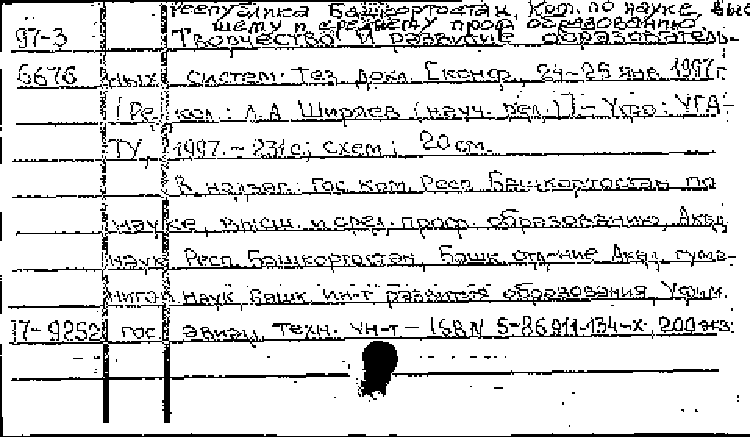 Республика Башкортостан. Ком. по науке, выс
шему и среднему проф. образованию
97-3 Творчество и развитие образователь-
6676 ных систем: Тез. докл. [конф., 24-25 янв. 1997 г.
/ Ред. кол.: Л.А. Ширяев (науч. ред.)]. - Уфа: УГА-
ТУ, 1997. - 231 с.; схем.; 20 см.
В надзаг.: Гос. ком. Респ. Башкортостан по
науке, высш. и сред. проф. образованию, Акад.
наук Респ. Башкортостан, Башк. отд-ние Акад. гума-
нитар. наук, Башк. ин-т развития образования, Уфим.
17-9252 гос. авиац. техн. ун-т - ISBN 5-86911-134-X 200 экз.